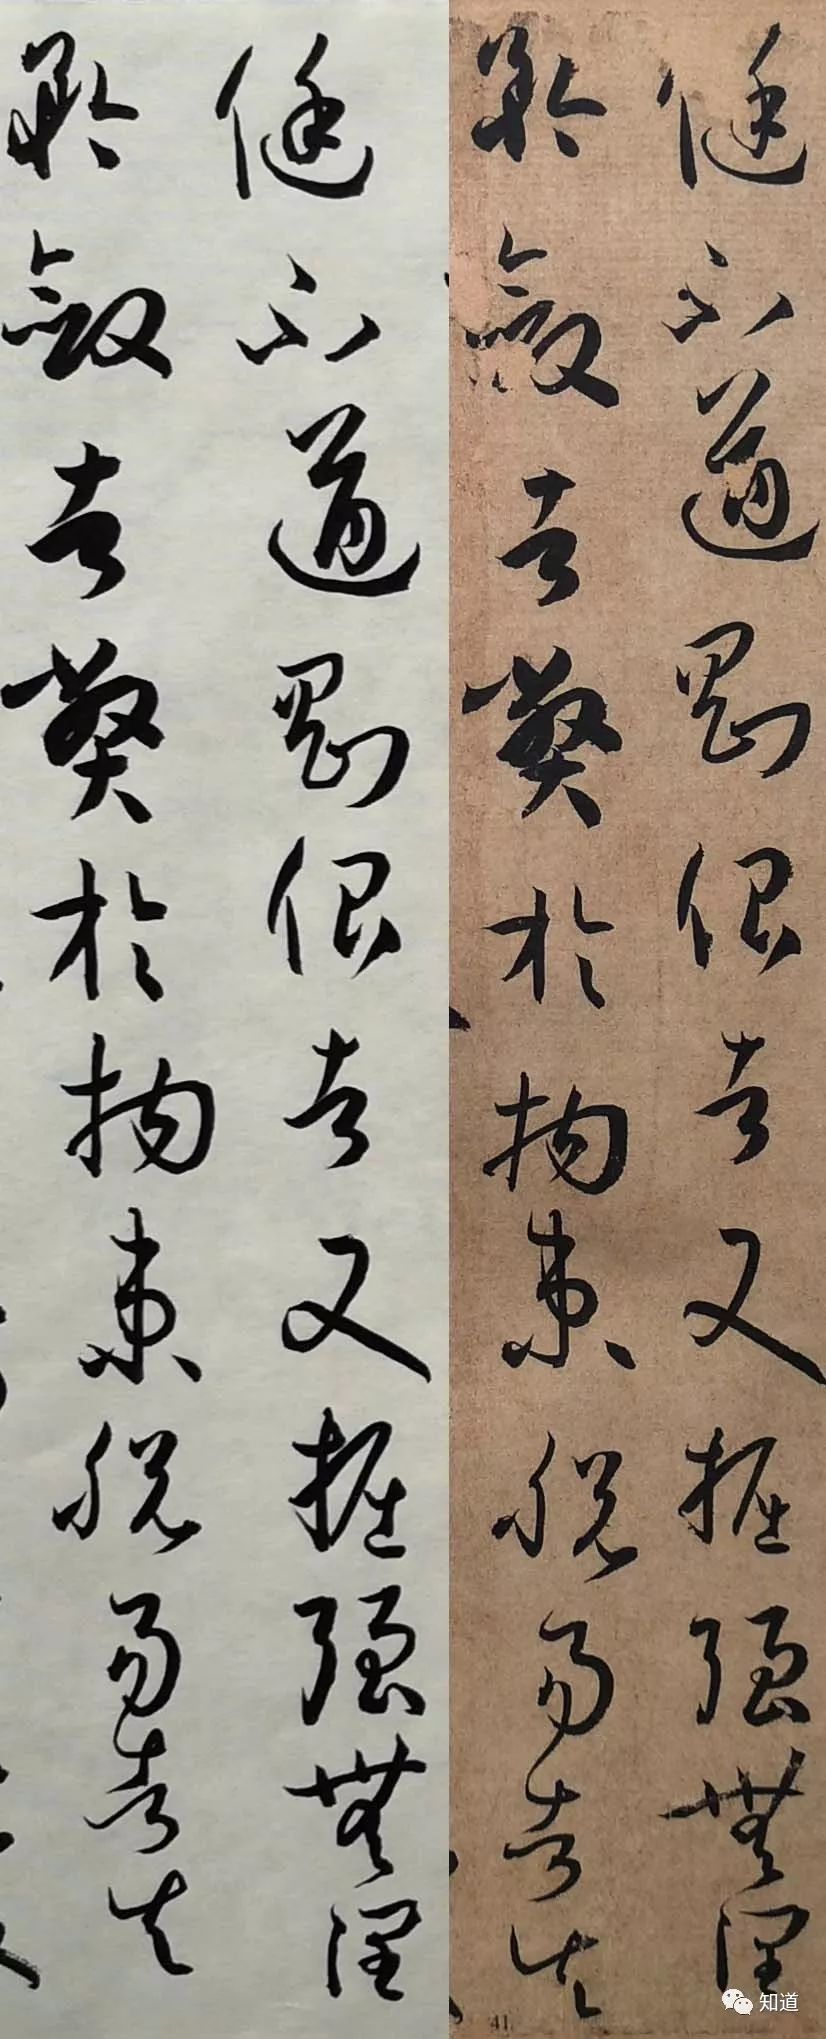 侹不遒剛佷者又掘強無潤
矜斂者弊於拘束脫易者失
侹不遒剛佷者又掘強無潤
矜斂者弊於拘束脫易者失
41
知道